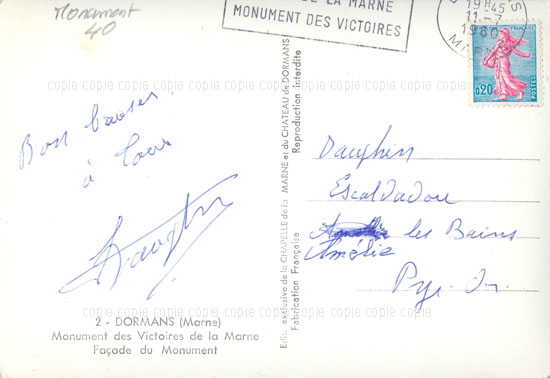 Monument
40
DE LA MARNE
MONUMENT DES VICTOIRES
S
19H45
11-7
1960
0,20
POSTES
copie copie copie copie copie copie copie copie copie copie copie
Bon baiser
à tous
2 - DORMANS (Marne)
Monument des Victoires de la Marne
Façade du Monument
Edit. exclusive de la CHAPELLE de la MARNE et du CHATEAU de DORMANS
Fabrication Française
Reproduction interdite
Dauphin
Escaldadou
les Bains
Amélie
Pyr. Or.
copie copie copie copie copie copie copie copie copie copie copie
copie copie copie copie copie copie copie copie copie copie copie